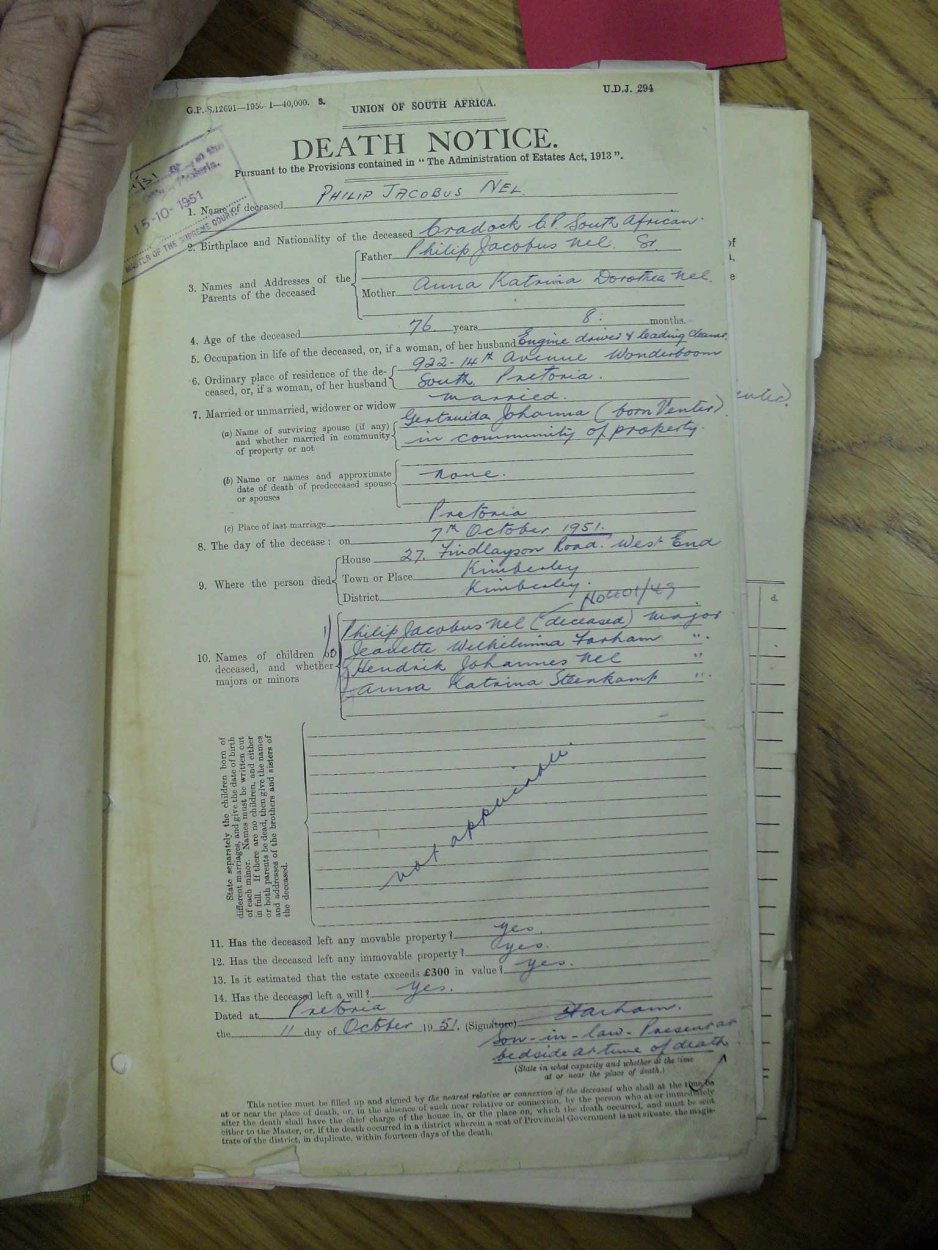 G.P.-S.12691—1950-1—40,000. S.
U.D.J. 294
UNION OF SOUTH AFRICA.
DEATH NOTICE.
Pursuant to the Provisions contained in "The Administration of Estates Act, 1913".
15-10-1951
MASTER OF THE SUPREME COURT
1. Name of deceased PHILIP JACOBUS NEL
2. Birthplace and Nationality of the deceased Cradock C.P. South African.
3. Names and Addresses of the Parents of the deceased
Father Philip Jacobus Nel. Sr.
Mother Anna Katrina Dorothea Nel.
4. Age of the deceased 76 years 8 months.
5. Occupation in life of the deceased, or, if a woman, of her husband Engine driver & leading cleaner
6. Ordinary place of residence of the deceased, or, if a woman, of her husband
922-14th Avenue Wonderboom
South, Pretoria.
7. Married or unmarried, widower or widow married.
(a) Name of surviving spouse (if any) and whether married in community of property or not
Gertruida Johanna (born Venter)
in community of property.
(b) Name or names and approximate date of death of predeceased spouse or spouses
none.
(c) Place of last marriage Pretoria
8. The day of the decease: on 7th October 1951.
9. Where the person died
House 27, Findlayson Road. West End
Town or Place Kimberley
District Kimberley.
No 401/49
10. Names of children of deceased, and whether majors or minors
Philip Jacobus Nel (deceased) major
Jeanette Wilhelmina Farham ".
Hendrik Johannes Nel "
Anna Katrina Steenkamp ".
State separately the children born of
different marriages, and give the date of birth
of each minor. Names must be written out
in full. If there are no children, and either
or both parents be dead, then give the names
and addresses of the brothers and sisters of
the deceased.
not applicable.
11. Has the deceased left any movable property? yes.
12. Has the deceased left any immovable property? yes.
13. Is it estimated that the estate exceeds £300 in value? yes.
14. Has the deceased left a will? yes.
Dated at Pretoria
the 11 day of October 1951. (Signature) Farham.
Son-in-law - Present at
bedside at time of death
(State in what capacity and whether at the time
at or near the place of death.)
This notice must be filled up and signed by the nearest relative or connexion of the deceased who shall at the time be
at or near the place of death, or, in the absence of such near relative or connexion, by the person who at or immediately
after the death shall have the chief charge of the house in, or the place on, which the death occurred, and must be sent
either to the Master, or, if the death occurred in a district wherein a seat of Provincial Government is not situate, the magis-
trate of the district, in duplicate, within fourteen days of the death.